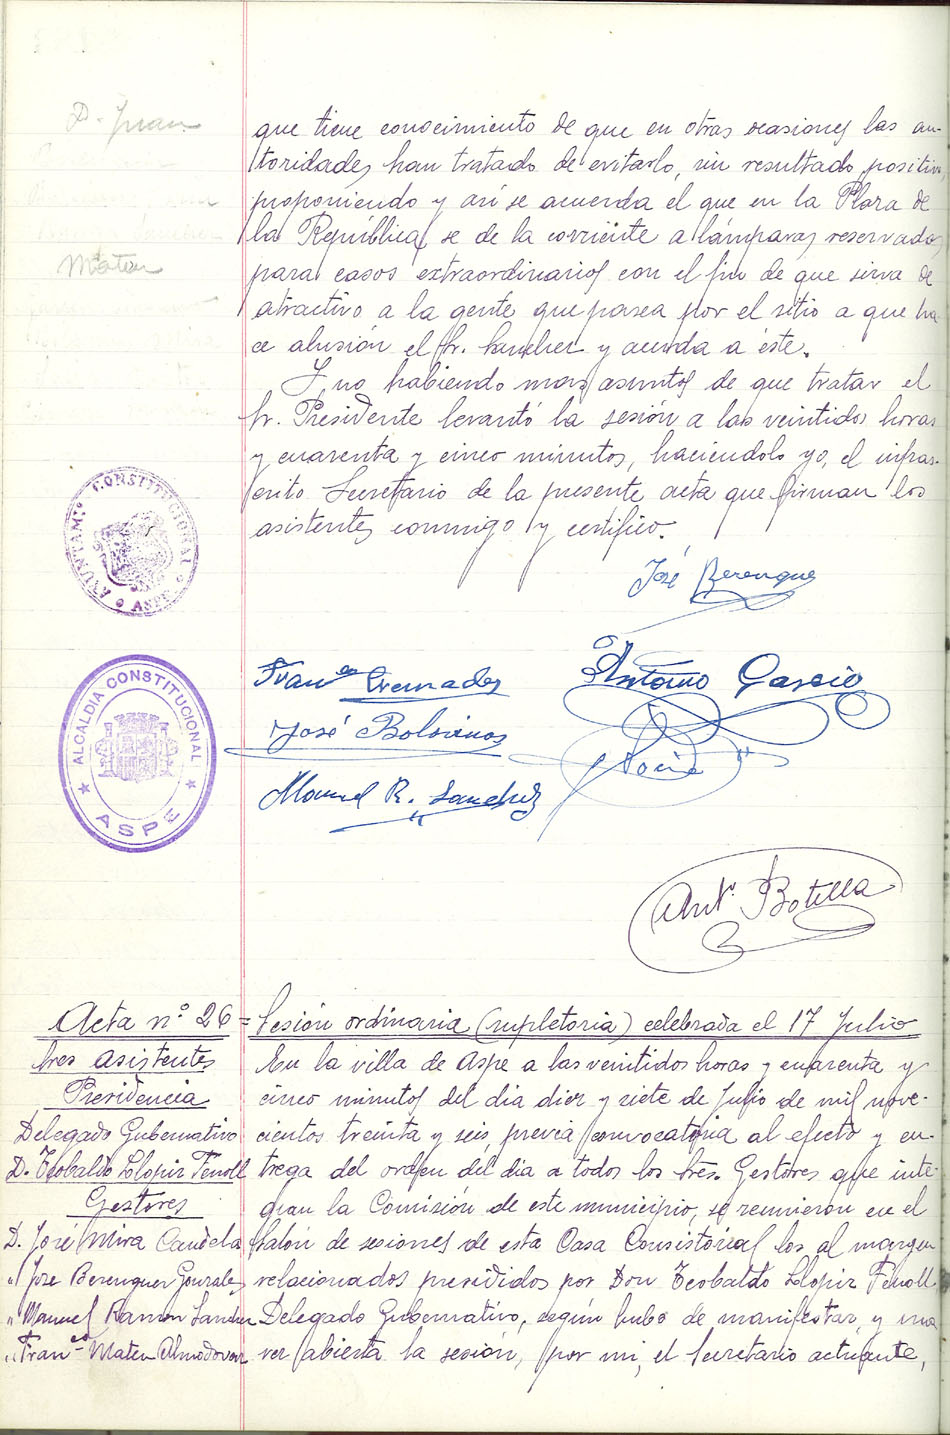 D. Juan
Mateu
que tiene conocimiento de que en otras ocasiones las au-
toridades han tratado de evitarlo, sin resultado positivo
proponiendo y así se acuerda el que en la Plaza de
la República se de la corriente a lámparas reservadas
para casos extraordinarios con el fin de que sirva de
atractivo a la gente que pasea por el sitio a que ha-
ce alusión el Sr. Sanchez y acuda a éste.
Y no habiendo mas asuntos de que tratar el
Sr. Presidente levantó la sesión a las veintidos horas
y cuarenta y cinco minutos, haciéndolo yo, el infras-
crito Secretario de la presente acta que firman los
asistentes conmigo y certifico.
AYUNTAMTO CONSTITUCIONAL
ASPE
José Berenguer
Antonio García
Franco Cremades
José Bolsinos
Manuel R. Sanchez
ALCALDIA CONSTITUCIONAL
ASPE
Antº Botella
Acta nº 26 = Sesión ordinaria (supletoria) celebrada el 17 Julio
Sres asistentes
Presidencia
Delegado Gubernativo
D. Teobaldo Llopiz Fenoll
Gestores
D. José Mira Candela
" Jose Berenguer Gonzalez
" Manuel Ramon Sanchez
" Franco Mateu Almodovar
En la villa de Aspe a las veintidos horas y cuarenta y
cinco minutos del dia diez y siete de Julio de mil nove-
cientos treinta y seis, previa convocatoria al efecto y en-
trega del orden del dia a todos los Sres. Gestores que inte-
gran la Comisión de este municipio, se reunieron en el
Salón de sesiones de esta Casa Consistorial los al margen
relacionados presididos por Don Teobaldo Llopiz Fenoll
Delegado Gubernativo, según hubo de manifestar, y una
vez abierta la sesión, por mi, el Secretario actuante,